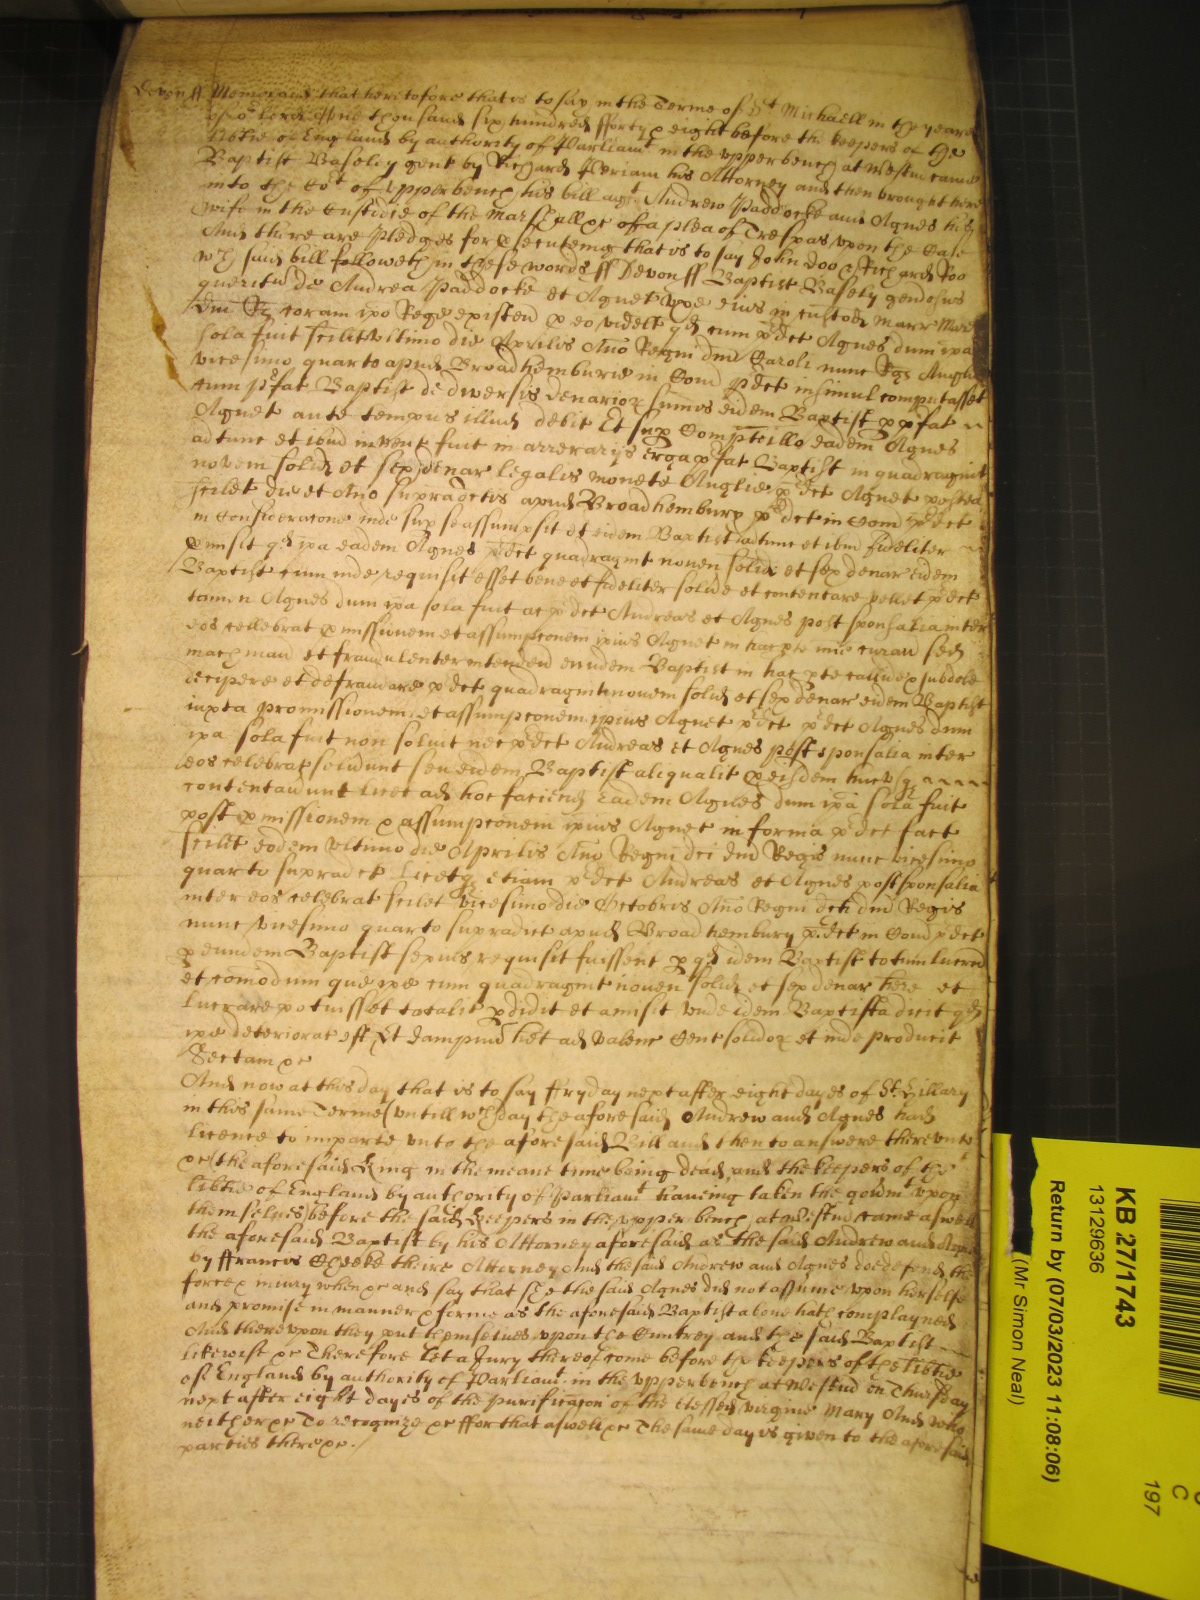 Devon ss Memorand that heretofore that is to say in the Terme of St Michaell in the yeare
of or Lord One thousand six hundred fforty & eight before the keepers of the
libtie of England by authority of Parliamt in the upper bench at Westm came
Baptist Baseley gent by Richard Periam his Attorney and then brought here
into the Cot of upper bench his bill agt Andrew Paddocke and Agnes his
wife in the Custodie of the Marshall &c of a plea of Trespas upon the Case
And there are Pledges for psecuteing that is to say John Doo & Richard Roo
wch said bill followeth in these words ss Devon ss Baptist Basely generosus
querit de Andrea Paddocke et Agnet uxe eius in custod Marr Mare
dni Rs coram ipo Rege existen p eo videlt qd cum pdct Agnes dum ipa
sola fuit scilt ultimo die Aprilis Anno Regni dni Caroli nunc Rgs Anglie
vicesimo quarto apud Broadhemburie in Com pdct insimul computasset
cum pfat Baptist de diversis denarior sumis eidem Baptist p pfat
Agnet ante tempus illud debit Et sup Compto illo eadem Agnes
adtunc et ibid invent fuit in arrerarijs erga pfat Baptist in quadragint
novem solid et sex denar legalis monete Anglie pdct Agnet postea
scilet die et Ano supradctis apud Broadhembury pdct in Com pdct
in Consideracone inde sup se assumpsit et eidem Baptist adtunc et ibm fideliter
pmisit qd ipa eadem Agnes pdct quadragint novem solid et sex denar eidem
Baptist cum inde requisit esset bene et fideliter solvie et contentare vellet pdct
tamen Agnes dum ipa sola fuit ac pdct Andreas et Agnes post sponsalia inter
eos cellebrat pmissionem et assumpconem ipius Agnet in hac pte mie curan sed
machinan et fraudulenter intenden eundem Baptist in hac pte callide & subdole
decipere et defraudare pdct quadragint novem solid et sex denar eidem Baptist
iuxta promissionem et assumpconem ipius Agnet pdct pdct Agnes dum
ipa sola fuit non soluit nec pdct Andreas et Agnes post sponsalia inter
eos celebrat solverunt seu eidem Baptist aliqualit p eisdem hucusq
contentaverunt licet ad hoc faciend eadem Agnes dum ipa sola fuit
post pmissionem & assumpconem ipius Agnet in forma pdct fact
scilit eodem ultimo die Aprilis Ano Regni dci dni Regis nunc vicesimo
quarto supradct Licetq etiam pdct Andreas et Agnes post sponsalia
inter eos celebrat scilet vicesimo die Octobris Ano Regni dcti dni Regis
nunc vicesimo quarto supradict apud Broad hembury pdct in Com pdct
p eundem Baptist sepius requisit fuissent p qd idem Baptist totum lucru
et comodum que ipe cum quadragint novem solid et sex denar here et
lucrare potuisset totalit pdidit et amisit unde idem Baptista dicit qd
ipe deteriorat est Et dampnu het ad valenc Cent solidor et inde producit
Sectam &c
And now at this day that is to say ffryday next after eight dayes of St Hillary
in this same Terme (untill wch day the aforesaid Andrew and Agnes had
licence to imparle unto the aforesaid Bill and then to answere thereunto
&c) the aforesaid King in the meane time being dead and the keepers of the
libtie of England by authority of Parliamt haveing taken the govermt upon
themselves before the said Keepers in the upper bench at Westm came aswell
the aforesaid Baptist by his Attorney aforesaid as the said Andrew and Agnes
by ffrancis Cheeke theire Attorney And the said Andrew and Agnes doe defend the
force & iniury when &c and say that she the said Agnes did not assume upon herselfe
and promise in manner & forme as the aforesaid Baptist above hath complayned
And thereupon they put themselves upon the Cuntrey and the said Baptist
likewise &c Therefore let a Jury thereof come before the keepers of the libtie
of England by authority of Parliamt in the upper bench at Westm on Thursday
next after eight dayes of the purificacon of the blessed virgine Mary And who
neither &c To recognize &c ffor that aswell &c The same day is given to the aforesaid
parties there &c./
KB 27/1743
13129636
Return by (07/03/2023 11:08:06)
(Mr Simon Neal)
C
197